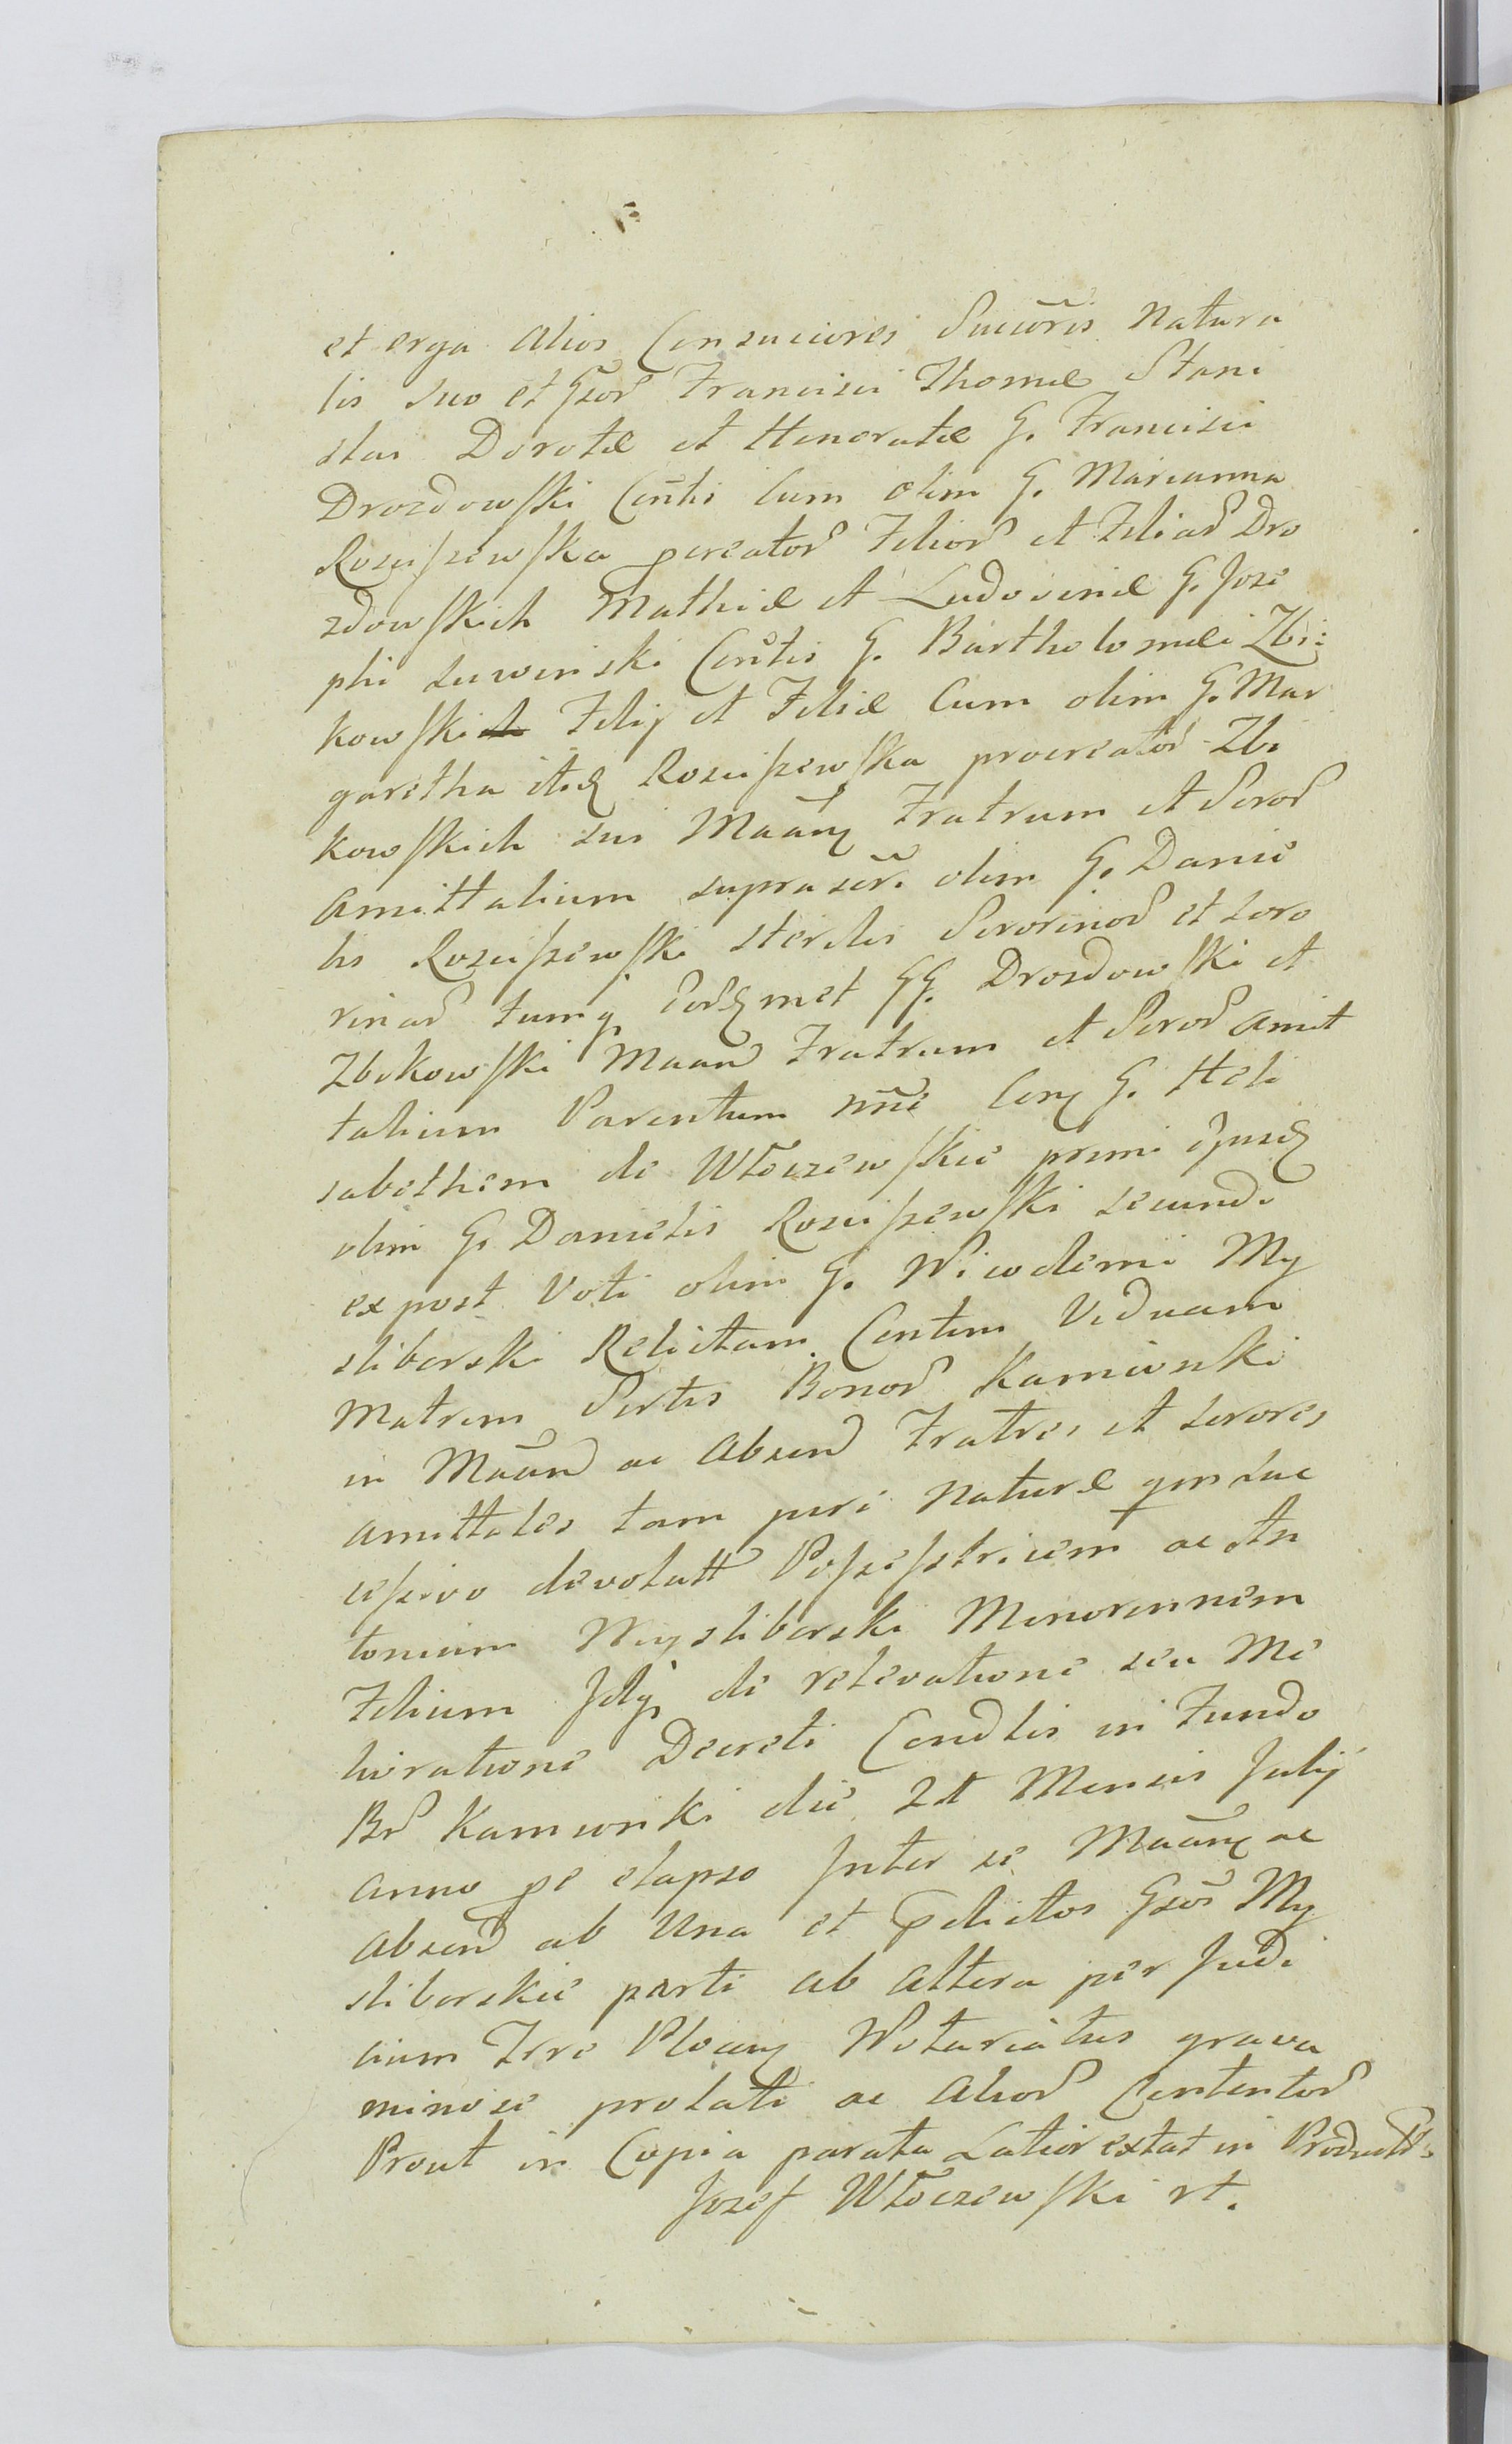 et erga alios Consucores Succōris Natura
lis suo et Gsor Francisci Thomæ Stani
slai Dorotæ et Honoratæ G. Francisci
Drozdowski Cōntis cum olim G. Marianna
Rosciszewska pcreator Filior et Filiar Dro
zdowskich Mathiæ et Ludovicæ G. Jose
phi suw Contis G. Bartholomæi Zbi:
kowski Filij et Filiæ cum olim G. Mar
garetha itidq Rosciszewska procreator Zbi
kowskich sui Māanq Fratrum et Soror
amittalium suprascr̄i olim G. Danie
lis Rosciszewski sterilis Sororinor et soro
rinar tumq Eordqmet GG. Drozdowski et
Zbikowski Maan Fratrum et Soror amit
talium Parentum nn̄e Conq G. Heli
sabethem de Wtoczewskie primi Ejusdq
olim G. Danielis Rosciszewski secundi
expost Voti olim G. Nicodemi My
sliborski Relictam Contem Viduam
Matrem Sortis Bonor Kamionki
in Māan ac absen Fratres et sorores
amittales tam juri naturæ qm suc
cessivo devolutt Possessricem ac An
tonium Mysliborski Minorennem
Filium Idq de relevatione seu Me
lioratione Decreti Condlis in Fundo
Br Kamionki die 21 Mensis Julij
anno pe elapso Inter se Māanq ac
absen ab Una et Pdictos Gsos My
sliborskie parte ab altera per Judi
cium Trre Plocenq Notariatus grava
minose prolati ac alior Contentor
Prout in Copia parata Latior extat in Productt
Jozef Wtoczewski rt.